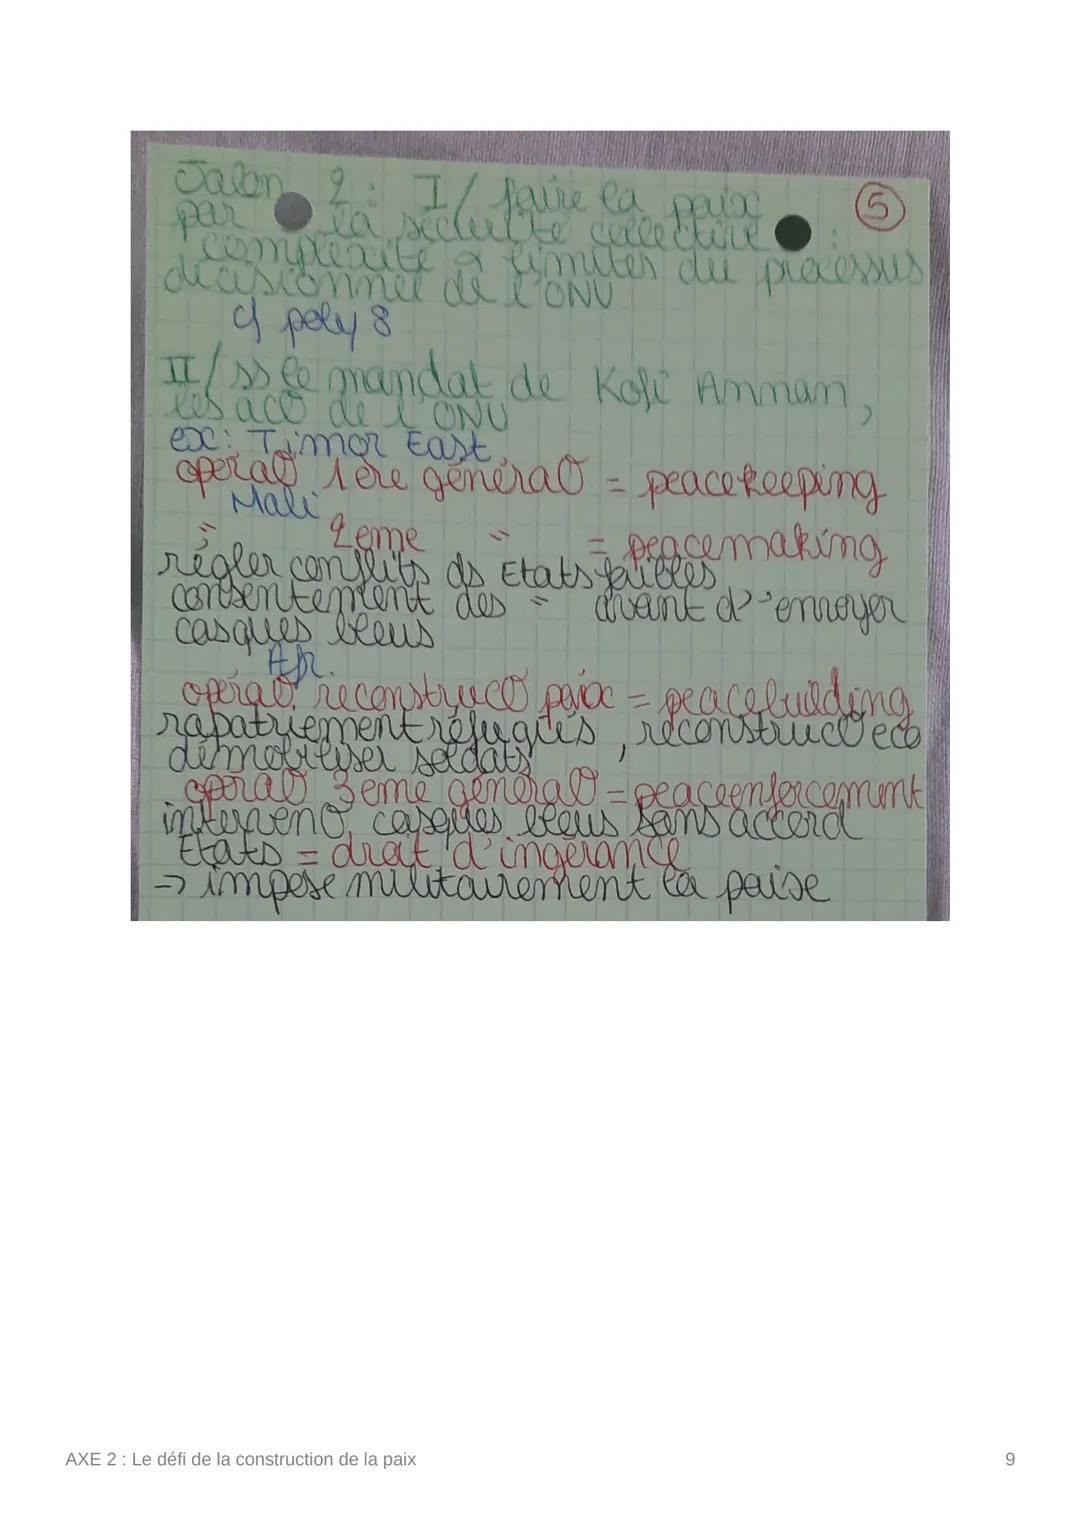 Jalon 2 : I/ faire la paix
5
par la sécurité collective :
complexité & limites du processus
décisionnel de l'ONU
cf poly 8
II/ ss le mandat de Kofi Amman,
les acO de l'ONU
ex: Timor East
opéraO 1ère généraO = peacekeeping
Mali
" 2eme " = peacemaking
régler conflits ds Etats faibles,
consentement des " avant d'envoyer
casques bleus
Afr.
opéraO reconstrucO paix = peacebuilding
rapatriement réfugiés, reconstrucO eco
démobiliser soldats
opéraO 3eme généraO = peaceenforcement
intervenO casques bleus sans accord
Etats = droit d'ingérance
-> impose militairement la paise
AXE 2 : Le défi de la construction de la paix
9